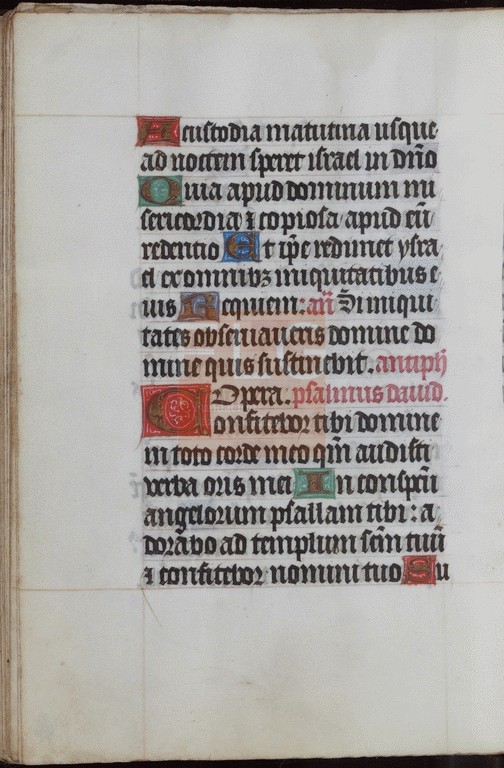 A custodia matutina usque
ad noctem speret israel in dn̄o
Quia apud dominum mi
sericordia ⁊ copiosa apud eū
redentio Et ip̄e redimet ysra
el ex omnibꝫ iniquitatibus e
ius Requiem: an̄ Si iniqui
tates obseruaueris domine do
mine quis sustinebit. antiph̄
Opera. psalmus dauid.
Confitebor tibi domine
in toto corde meo qm̄ audisti
verba oris mei In conspc̄u
angelorum psallam tibi: a
dorabo ad templum scm̄ tuū
⁊ confitebor nomini tuo Su